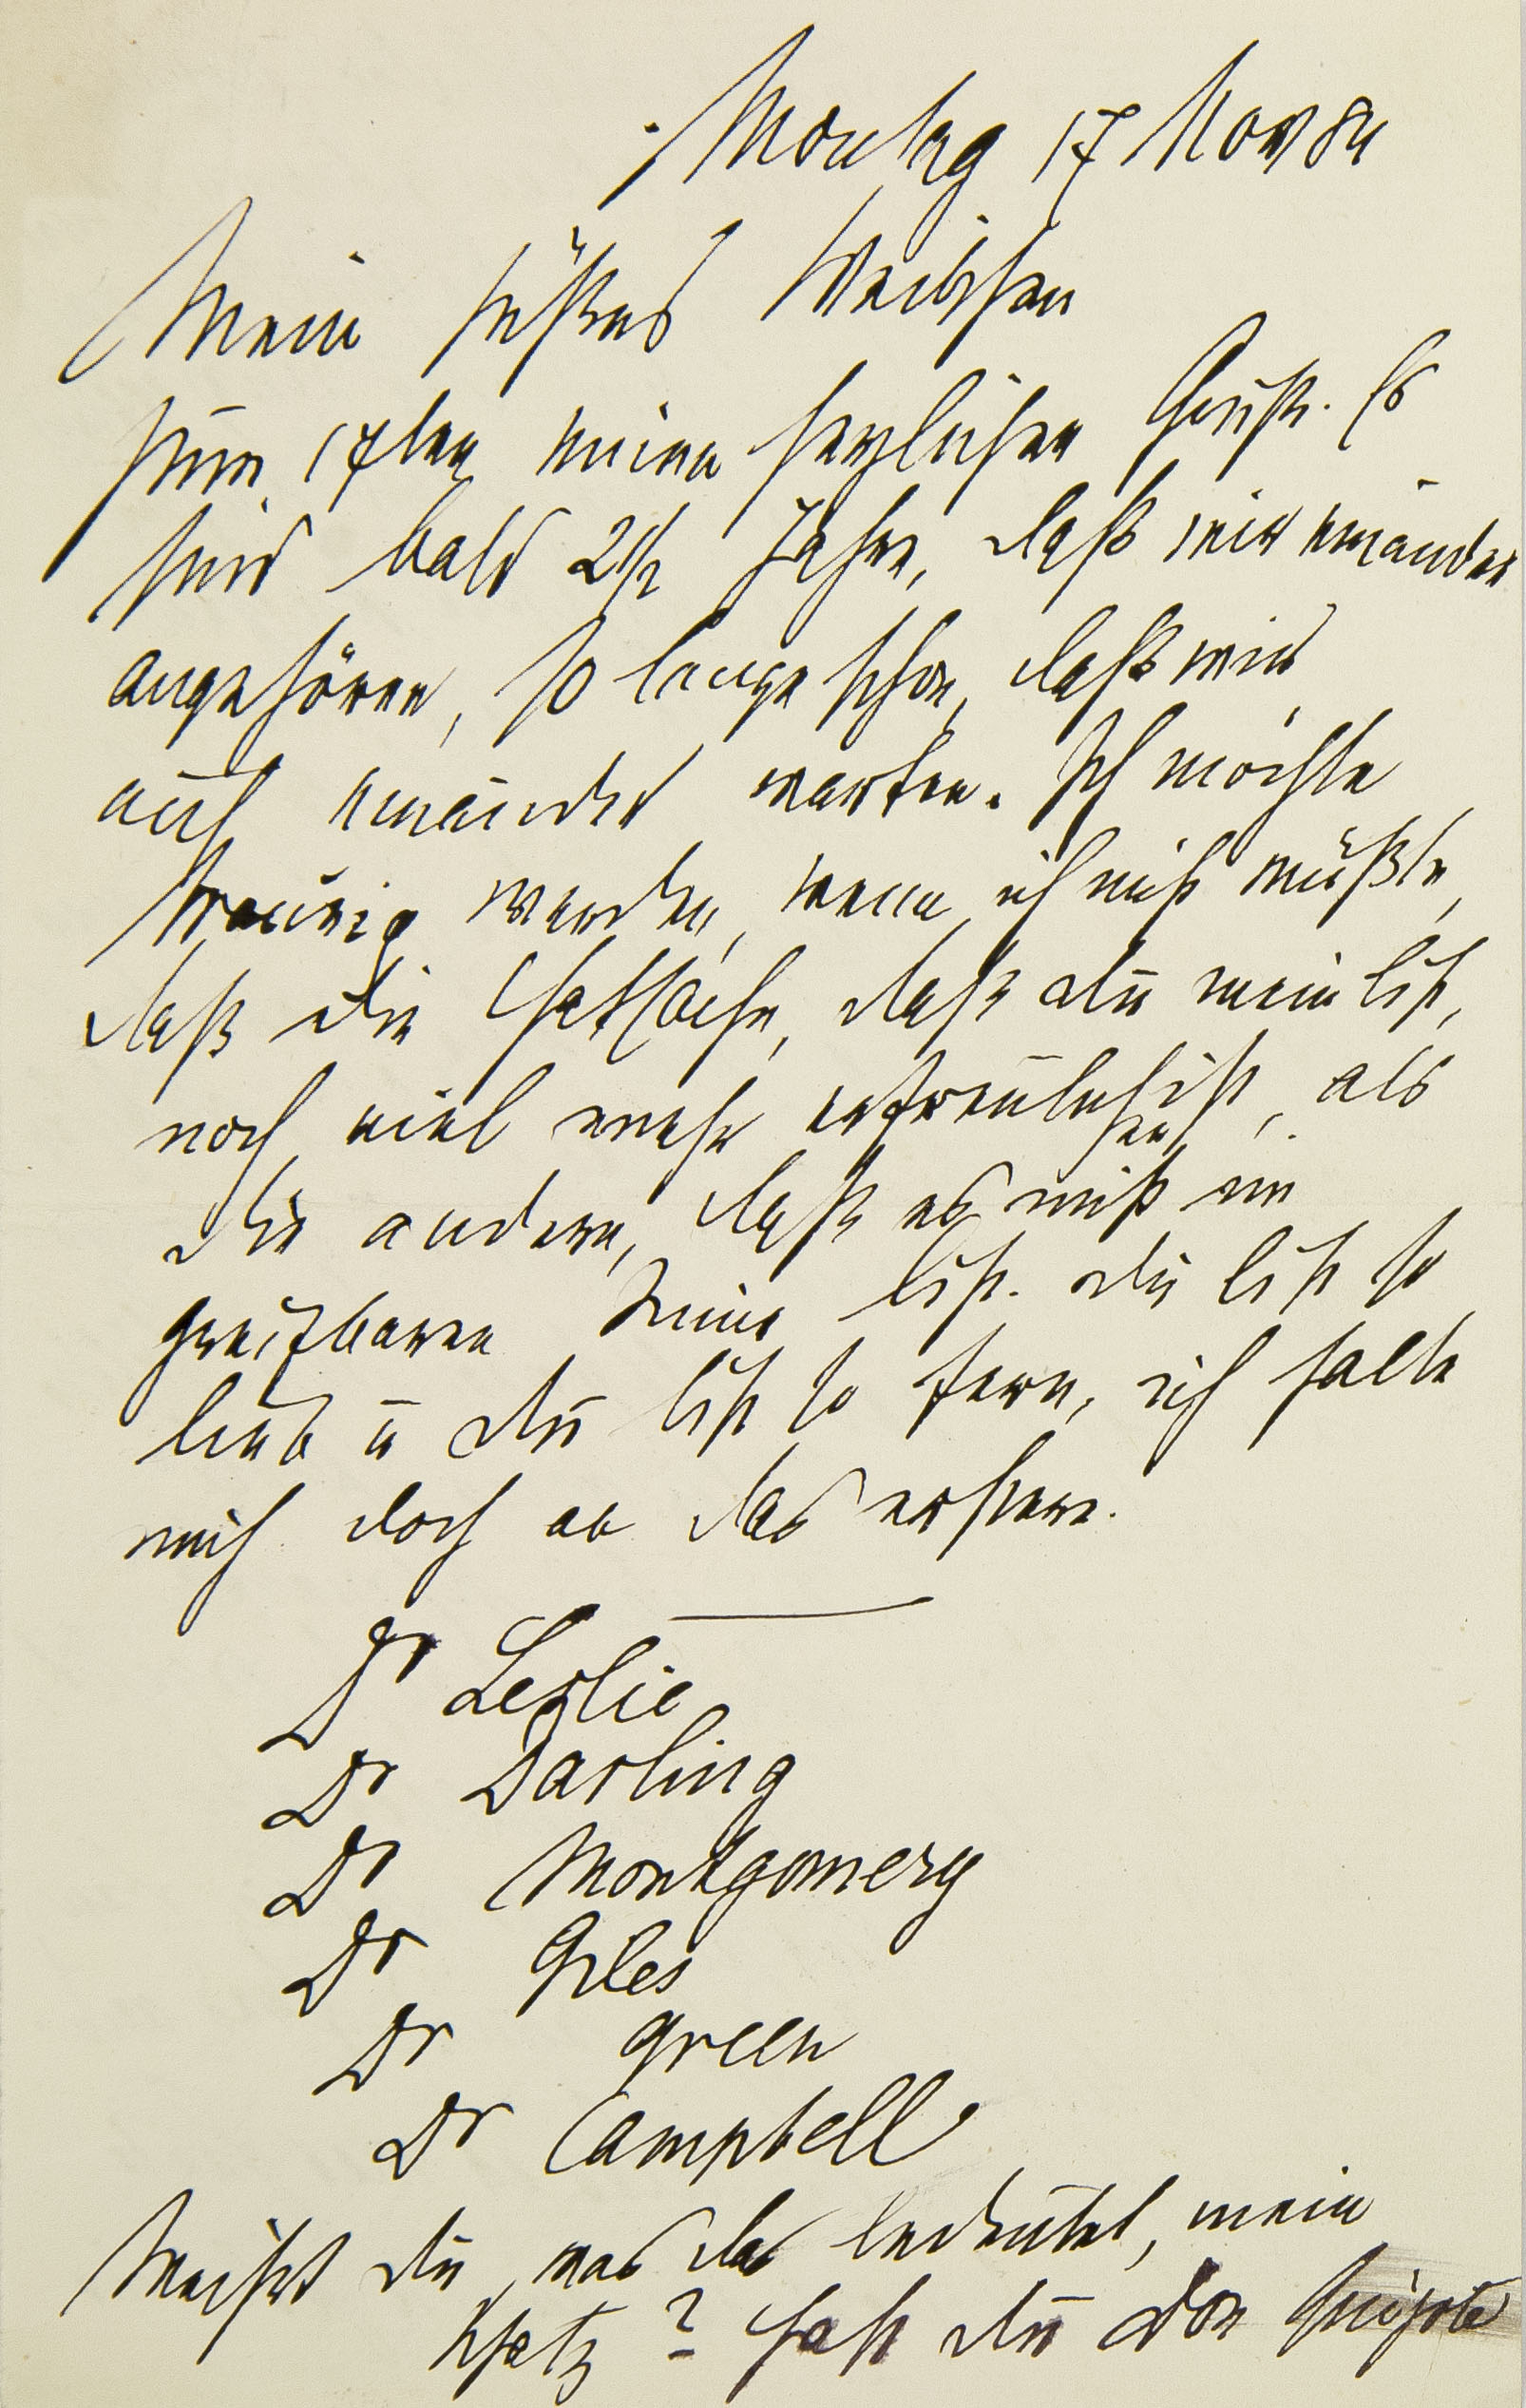 Montag 17 Nov 84
Mein süßes Weibchen
Zum 17ten meinen herzlichen Gruß. Es
sind bald 2 1/2 Jahre, daß wir einander
angehören, so lange schon, daß wir
auf einander warten. Ich möchte
traurig werden, wenn ich nicht wüßte,
daß die Thatsache, daß du mein bist,
noch viel mehr erfreulich ist, als
die andere, daß es nicht im
greifbaren Sinne ist. Du bist so
lieb u du bist so fern, ich halte
mich doch an das erstere.
Dr Leslie
Dr Darling
Dr Montgomery
Dr Giles
Dr Green
Dr Campbell
Weißt du, was das bedeutet, mein
Schatz? Hast du Don Quijote